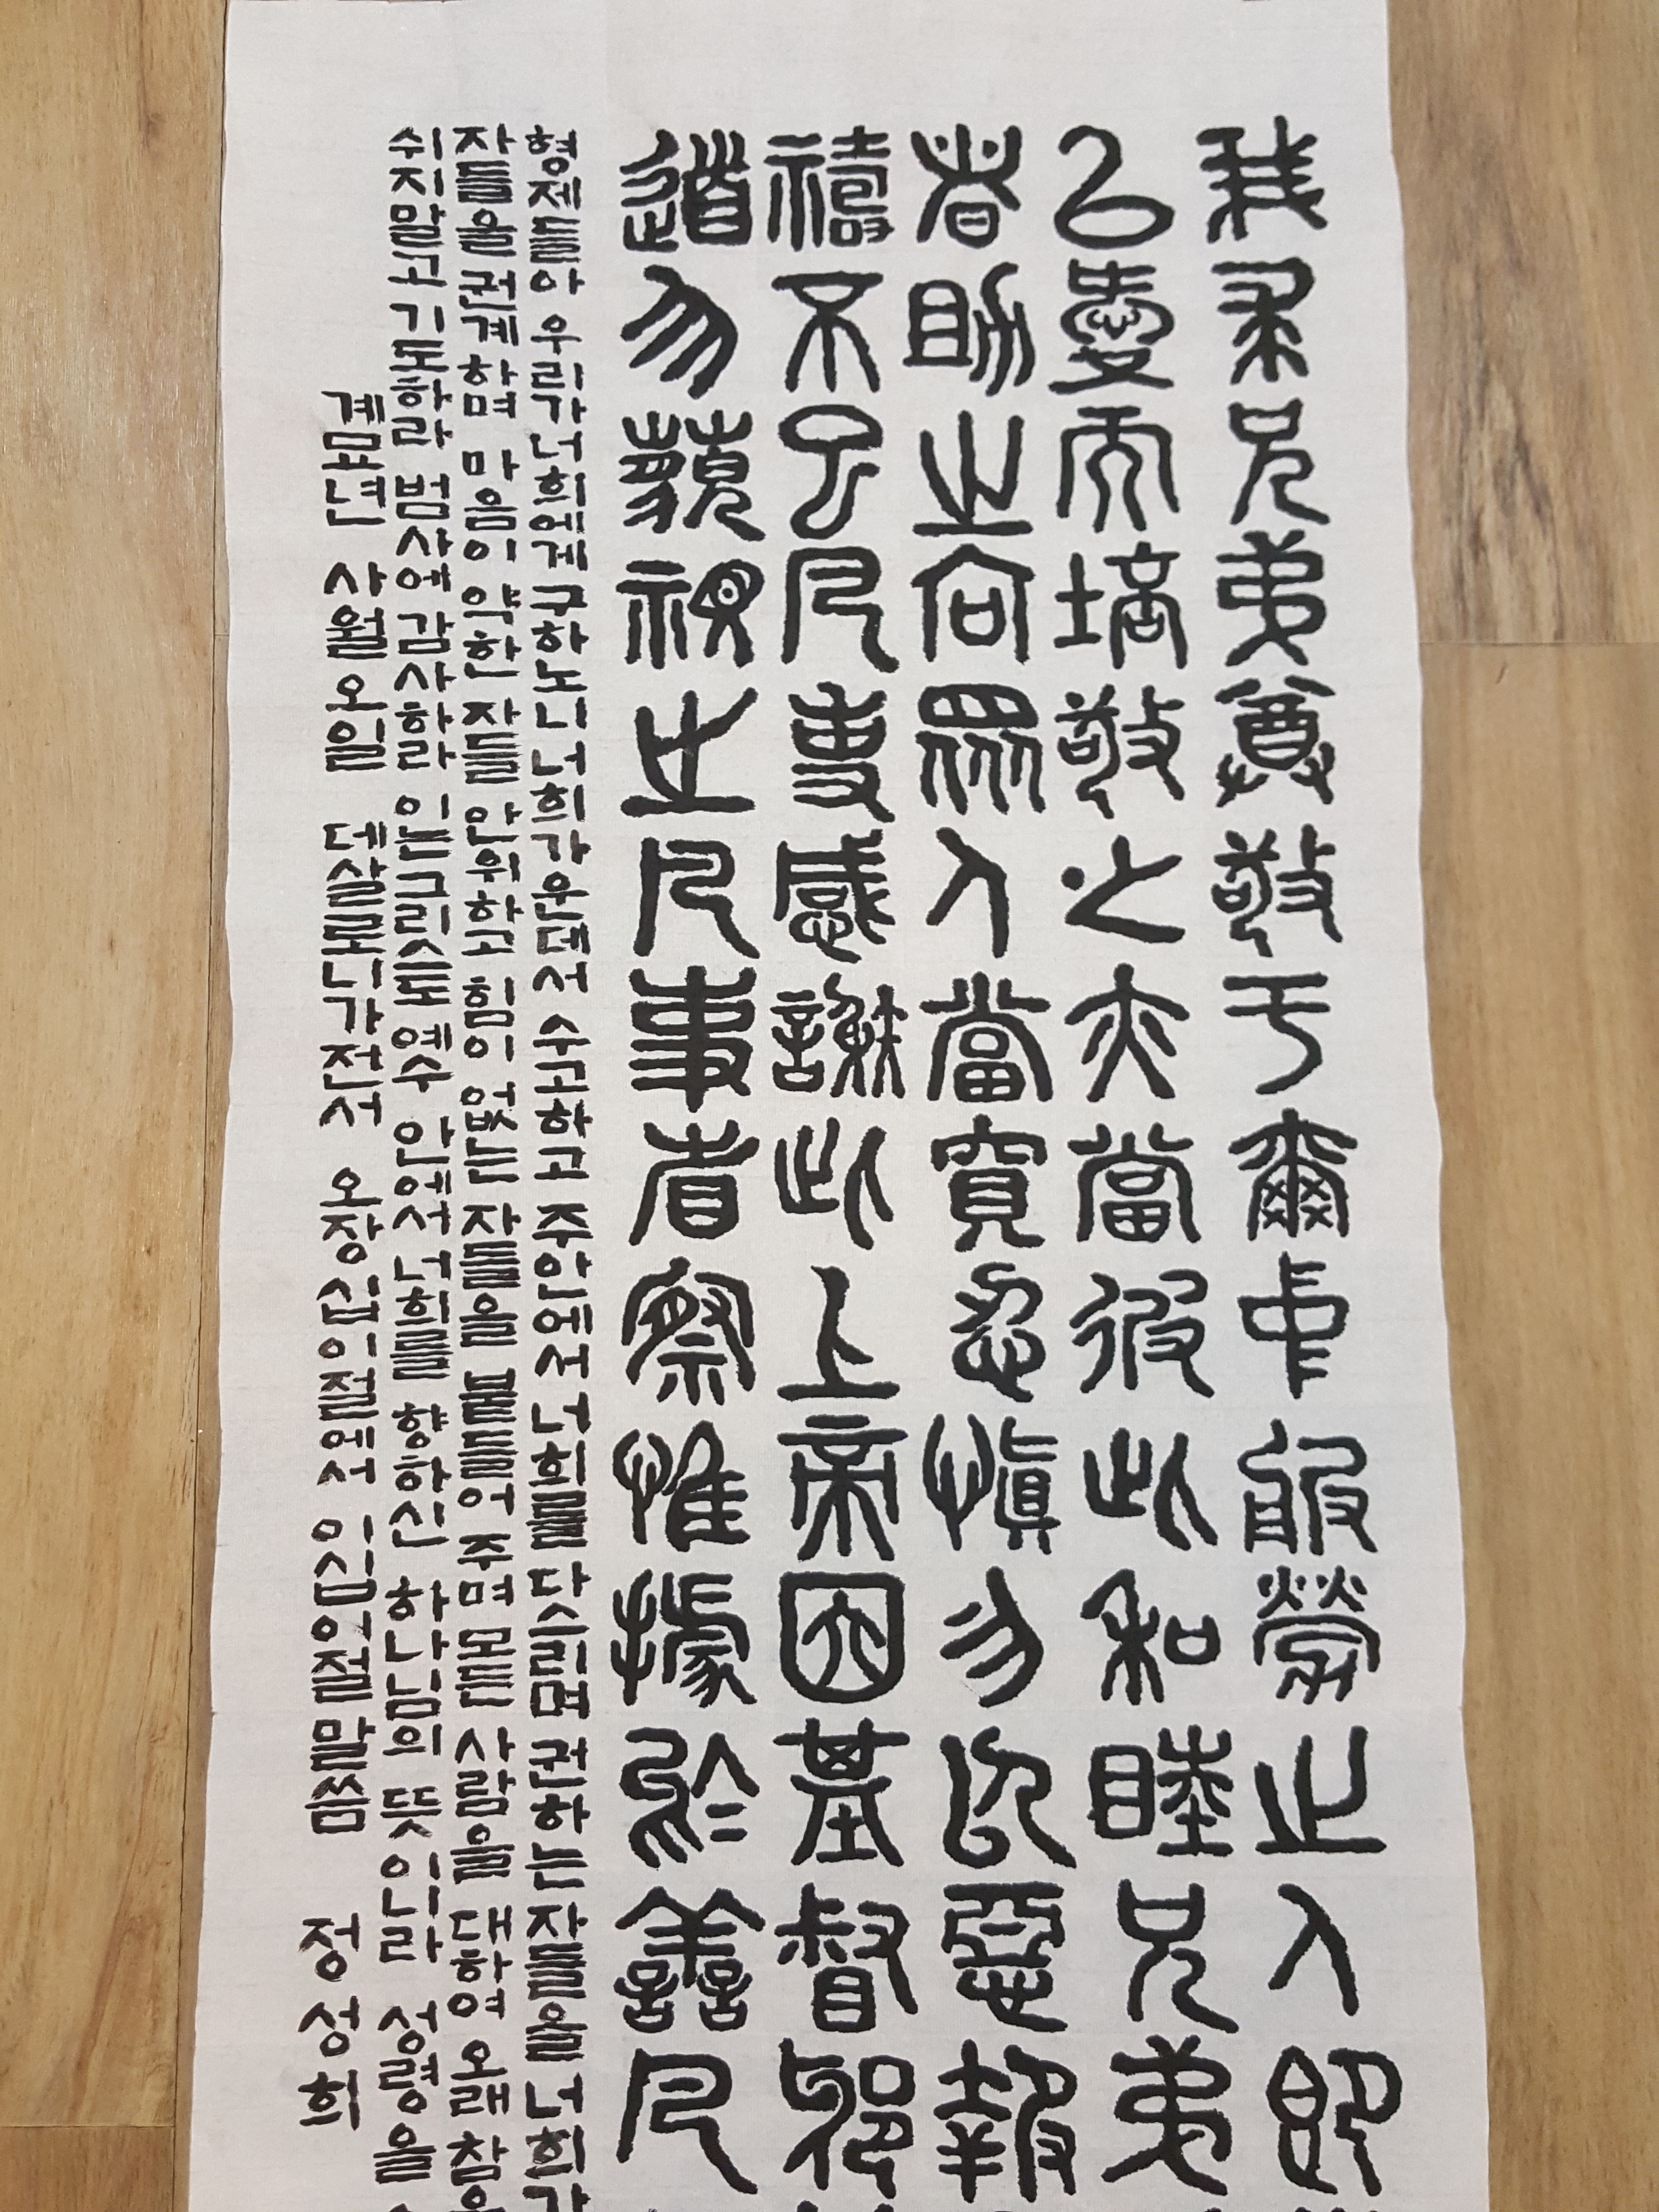 我求兄弟尊敬于爾中服勞之人即
以愛而敬之亦當彼此和睦兄弟
者助之向衆人當寬忍慎勿以惡報
禱不已凡事感謝此上帝因基督耶
道勿藐視之凡事省察惟據於善凡
형제들아 우리가 너희에게 구하노니 너희 가운데서 수고하고 주안에서 너희를 다스리며 권하는 자들을 너희가
자들을 권계하며 마음이 약한 자들 안위하고 힘이 없는 자들을 붙들어 주며 모든 사람을 대하여 오래 참음
쉬지말고 기도하라 범사에 감사하라 이는 그리스도 예수 안에서 너희를 향하신 하나님의 뜻 이니라 성령을
계묘년 사월 오일 데살로니가전서 오장 십이절에서 이십일절 말씀 정성희